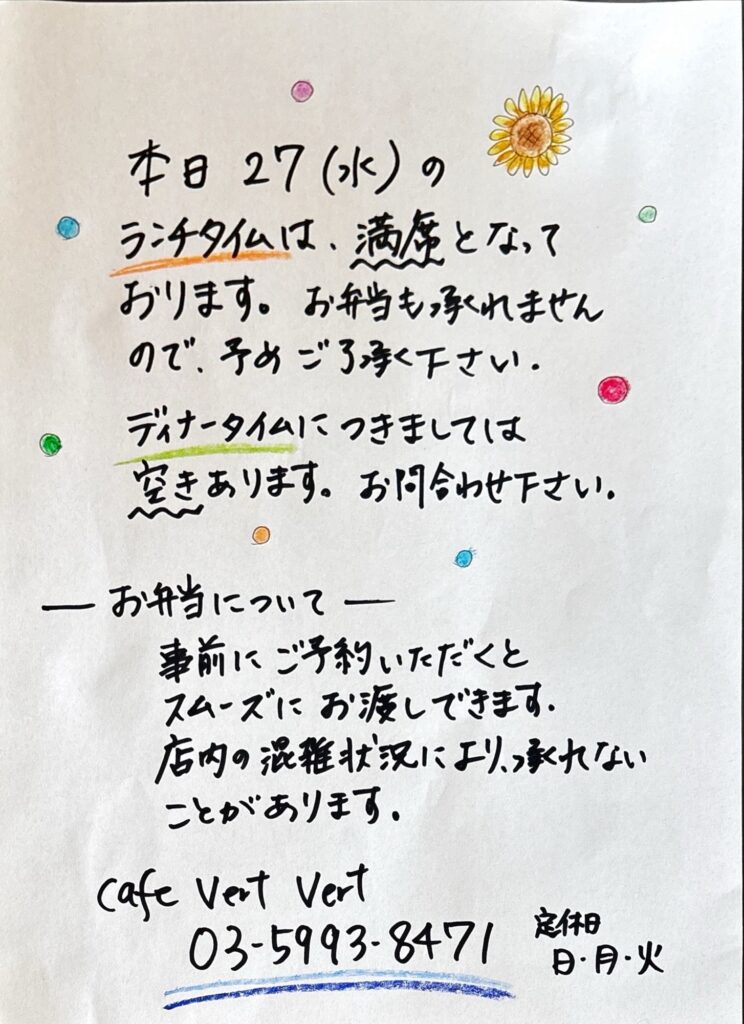 本日 27(水)の
ランチタイムは、満席となって
おります。お弁当も承れません
ので、予めご了承く下さい。
ディナータイムにつきましては
空きあります。お問合わせ下さい。
— お弁当について —
事前にご予約いただくと
スムーズにお渡しできます.
店内の混雑状況により、承れない
ことがあります。
cafe Vert Vert
03-5993-8471
定休日
日・月・火